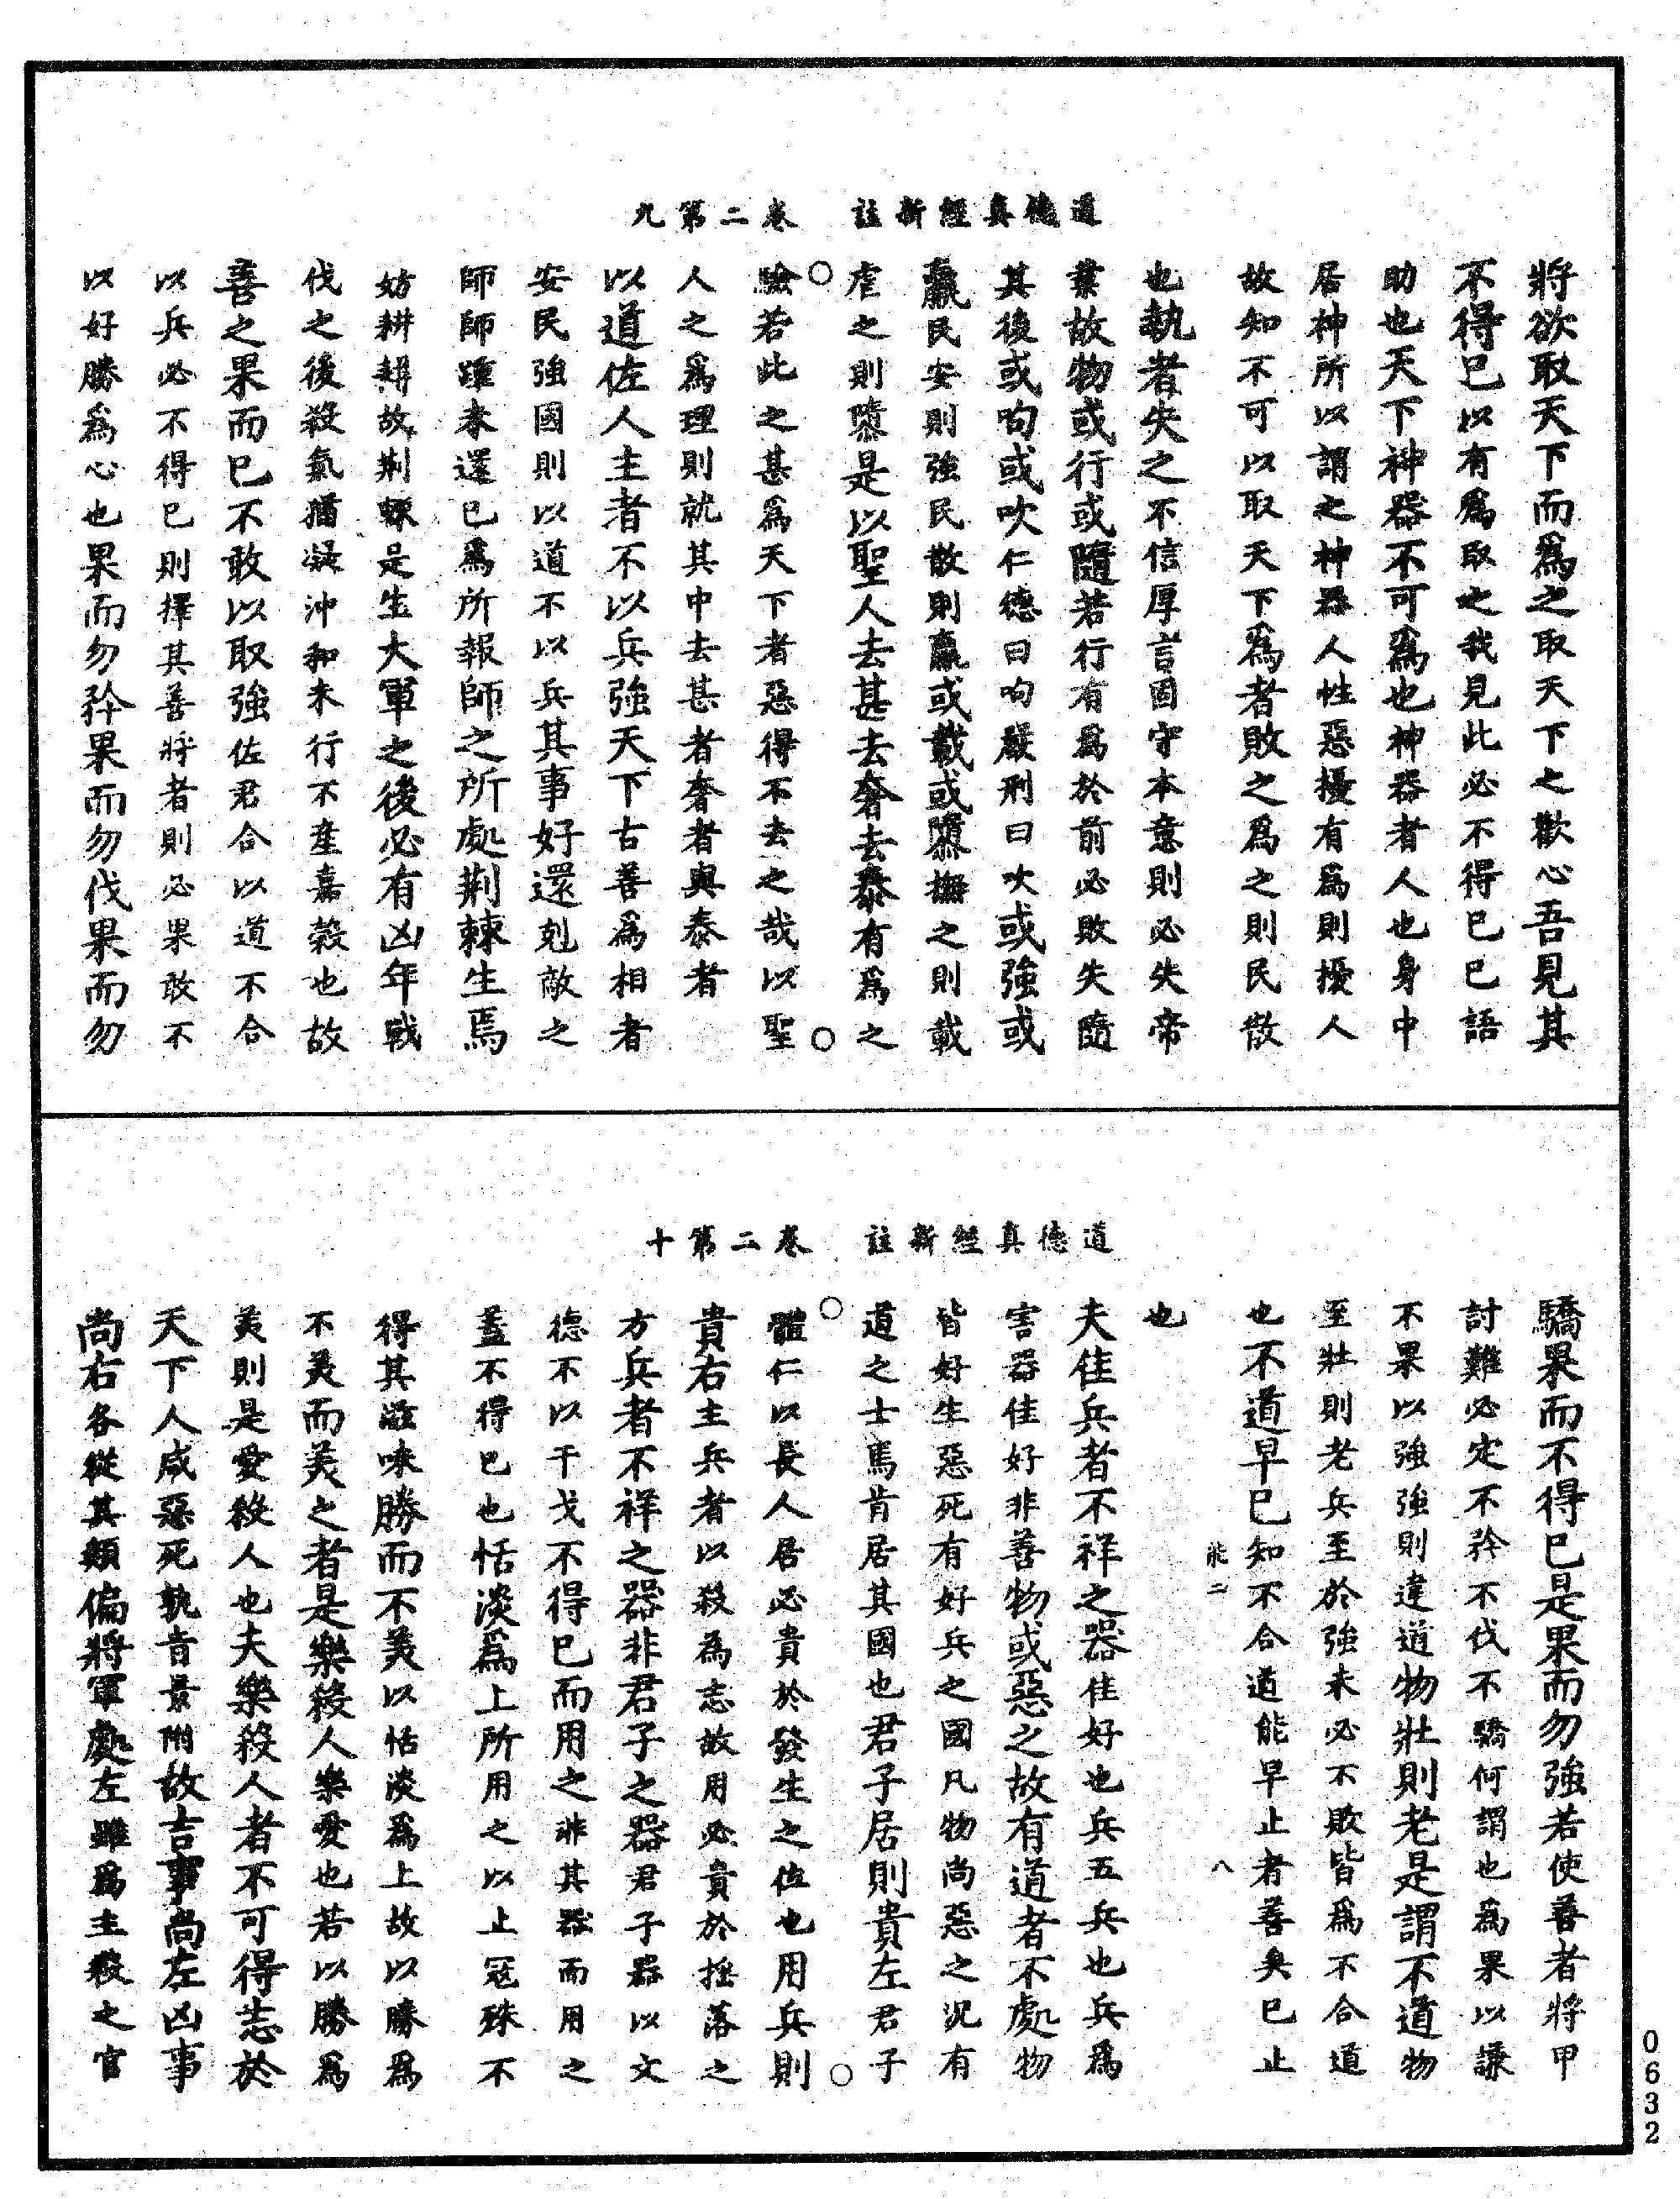 道德真經新註　卷二第九
將欲取天下而爲之取天下之歡心吾見其
不得已以有爲取之我見此必不得已已語
助也天下神器不可爲也神器者人也身中
居神所以謂之神器人性惡擾有爲則擾人
故知不可以取天下爲者敗之爲之則民散
也執者失之不信厚言固守本意則必失帝
業故物或行或隨若行有爲於前必敗失隨
其後或呴或吹仁德曰呴嚴刑曰吹或強或
羸民安則強民散則羸或載或隳撫之則載
虐之則隳是以聖人去甚去奢去泰有爲之
驗若此之甚爲天下者惡得不去之哉以聖
人之爲理則就其中去甚者奢者與泰者
以道佐人主者不以兵強天下古善爲相者
安民強國則以道不以兵其事好還剋敵之
師師踵未還已爲所報師之所處荆棘生焉
妨耕耕故荆棘是生大軍之後必有凶年戰
伐之後殺氣猶凝沖和未行不產嘉穀也故
善之果而已不敢以取強佐君合以道不合
以兵必不得已則擇其善將者則必果敢不
以好勝爲心也果而勿矜果而勿伐果而勿
道德真經新註　卷二第十
驕果而不得已是果而勿強若使善者將甲
討難必定不矜不伐不驕何謂也爲果以謙
不果以強強則違道物壯則老是謂不道物
至壯則老兵至於強未必不敗皆爲不合道
也不道早已知不合道能早止者善矣已止
能二　八
也
夫佳兵者不祥之器佳好也兵五兵也兵爲
害器佳好非善物或惡之故有道者不處物
皆好生惡死有好兵之國凡物尚惡之況有
道之士焉肯居其國也君子居則貴左君子
體仁以長人居必貴於發生之位也用兵則
貴右主兵者以殺為志故用必貴於摇落之
方兵者不祥之器非君子之器君子器以文
德不以干戈不得已而用之非其器而用之
蓋不得已也恬淡爲上所用之以止寇殊不
得其滋味勝而不美以恬淡爲上故以勝爲
不美而美之者是樂殺人樂愛也若以勝爲
美則是愛殺人也夫樂殺人者不可得志於
天下人咸惡死孰肯景附故吉事尚左凶事
尚右各從其類偏將軍處左雖爲主殺之官
0632